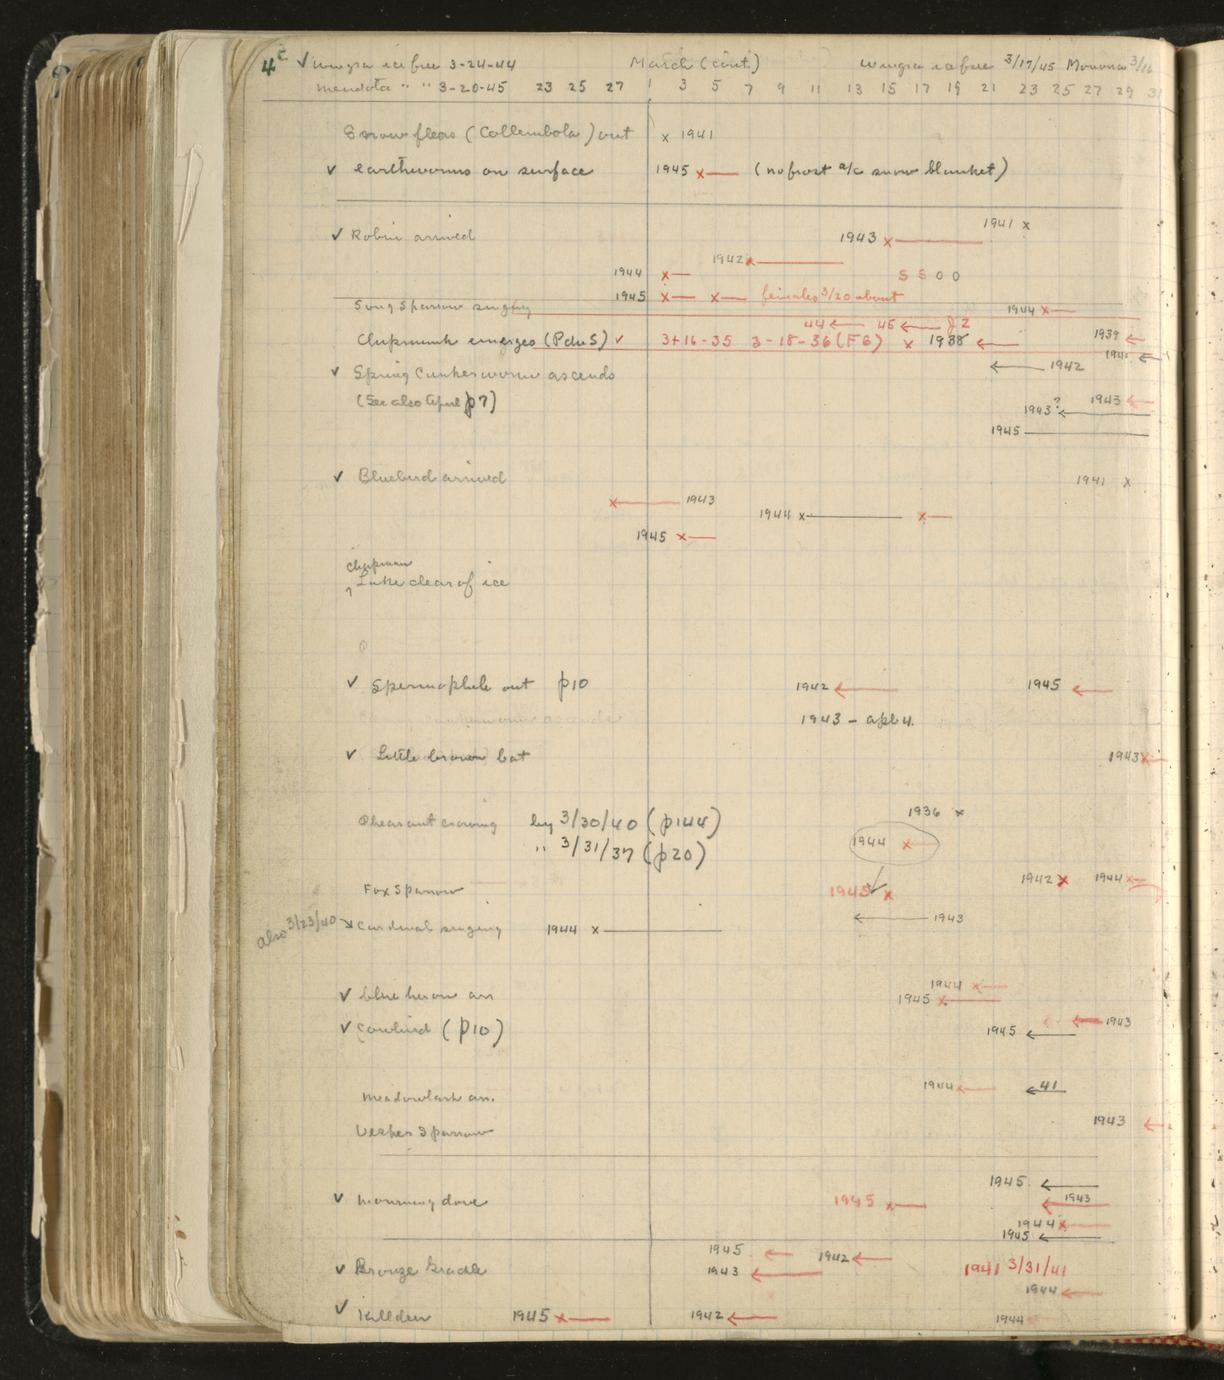 4c ✓ wingra ice free 3-24-44 March (cont.) wingra ice free 3/17/45 Monona 3/16
mendota " " 3-20-45 23 25 27 1 3 5 7 9 11 13 15 17 19 21 23 25 27 29 31
Snow fleas (Collembola) out x 1941
✓ earthworms on surface 1945 x (no frost a/c snow blanket)
1941 x
✓ Robin arrived 1943 x
1942 x
1944 x S S O O
1945 x x females 3/20 about
Song Sparrow singing 1944 x
44 ← 45 ←
Chipmunk emerges (Pdu S) ✓ 3+16-35 3-18-36 (F6) x 1938 ← 1939 ←
1941 ←
✓ Spring Cankerworm ascends ← 1942
(See also April p7) 1943 ←
1943? ←
1945
✓ Bluebird arrived 1941 x
x 1943
1944 x x
1945 x
Chipman
Lake clear of ice
✓ Spermophile out p10 1942 ← 1945 ←
1943 - apl 4.
✓ Little brown bat 1943 x
1936 x
Pheasant crowing by 3/30/40 (p144)
" 3/31/37 (p20) 1944 x
Fox Sparrow 1945 ✓ x 1942 x 1944 x
← 1943
also 3/23/40 Cardinal singing 1944 x
1944 x
✓ blue heron arr 1945 x
← 1943
✓ Cowbird (p10) 1945 ←
Meadowlark arr. 1944 ← 41
Vesper Sparrow 1943 ←
1945 ←
✓ mourning dove 1945 x 1943
1944 x
1945 ←
1945 ← 1942 ←
✓ Bronze Grackle 1943 ← 1941 3/31/41
1944 ←
✓ Killdeer 1945 x 1942 ← 1944